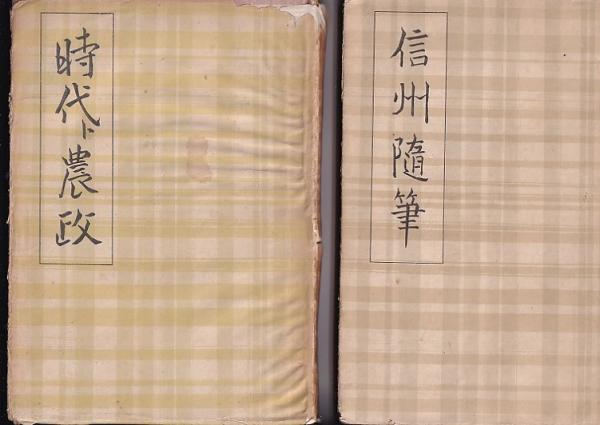 時代ト農政
信州随筆